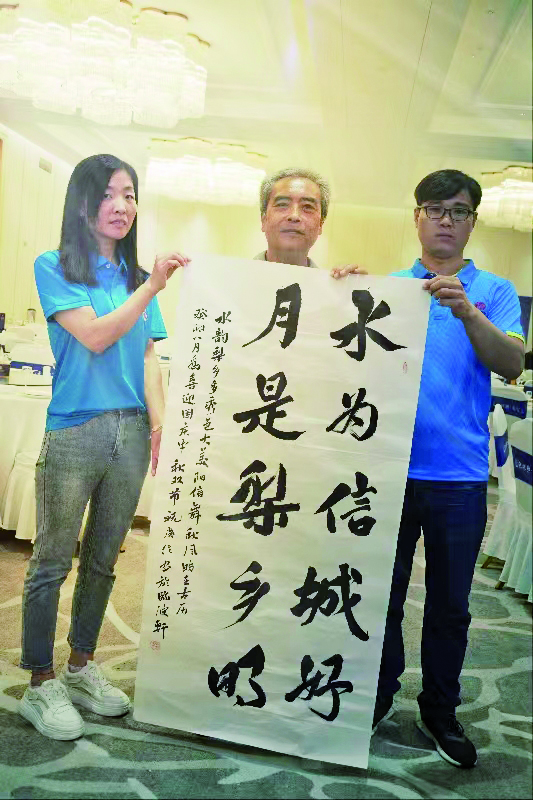 水为信城好
月是梨乡明
水韵梨乡多色大美阳信舞秋风在古历
癸卯八月为喜迎国庆中秋双节祝书于临波轩